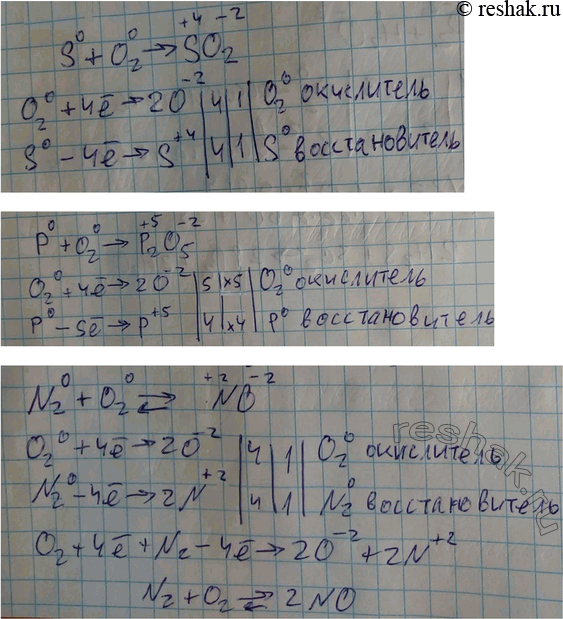 ©Reshak.ru
S⁰ + O₂⁰ → S⁺⁴O₂⁻²
O₂⁰ + 4ē → 2O⁻² | 4 | 1 | O₂⁰ окислитель
S⁰ - 4ē → S⁺⁴ | 4 | 1 | S⁰ восстановитель
P⁰ + O₂⁰ → P₂⁺⁵O₅⁻²
O₂⁰ + 4ē → 2O⁻² | 5 | ×5 | O₂⁰ окислитель
P⁰ - 5ē → P⁺⁵ | 4 | ×4 | P⁰ восстановитель
N₂⁰ + O₂⁰ ⇄ N⁺²O⁻²
O₂⁰ + 4ē → 2O⁻² | 4 | 1 | O₂⁰ окислитель
N₂⁰ - 4ē → 2N⁺² | 4 | 1 | N₂⁰ восстановитель
O₂ + 4ē + N₂ - 4ē → 2O⁻² + 2N⁺²
N₂ + O₂ ⇄ 2NO
reshak.ru